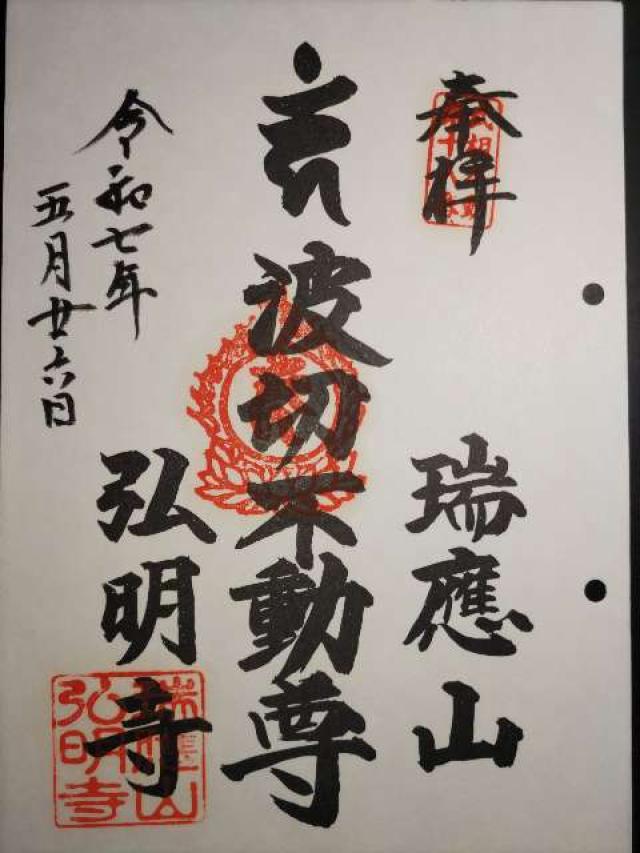 奉拝
瑞應山
波切不動尊
弘明寺
令和七年
五月廿六日
瑞應山
弘明寺